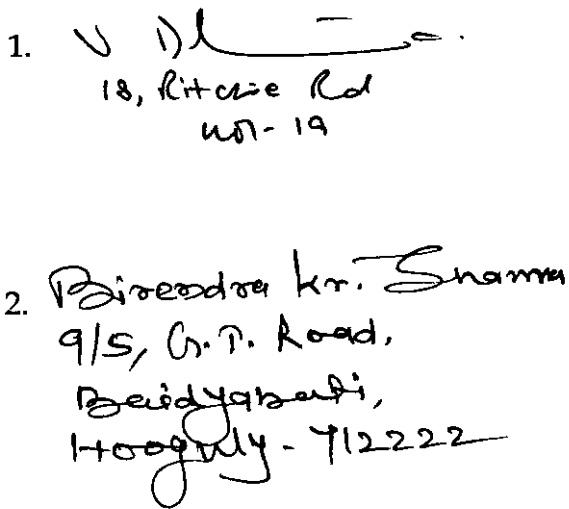 1. V
18, Ritchie Rd
Kol-19
2. Birendra Kr. Sharma
9/5, G.T. Road,
Baidyabati,
Hooghly-712222